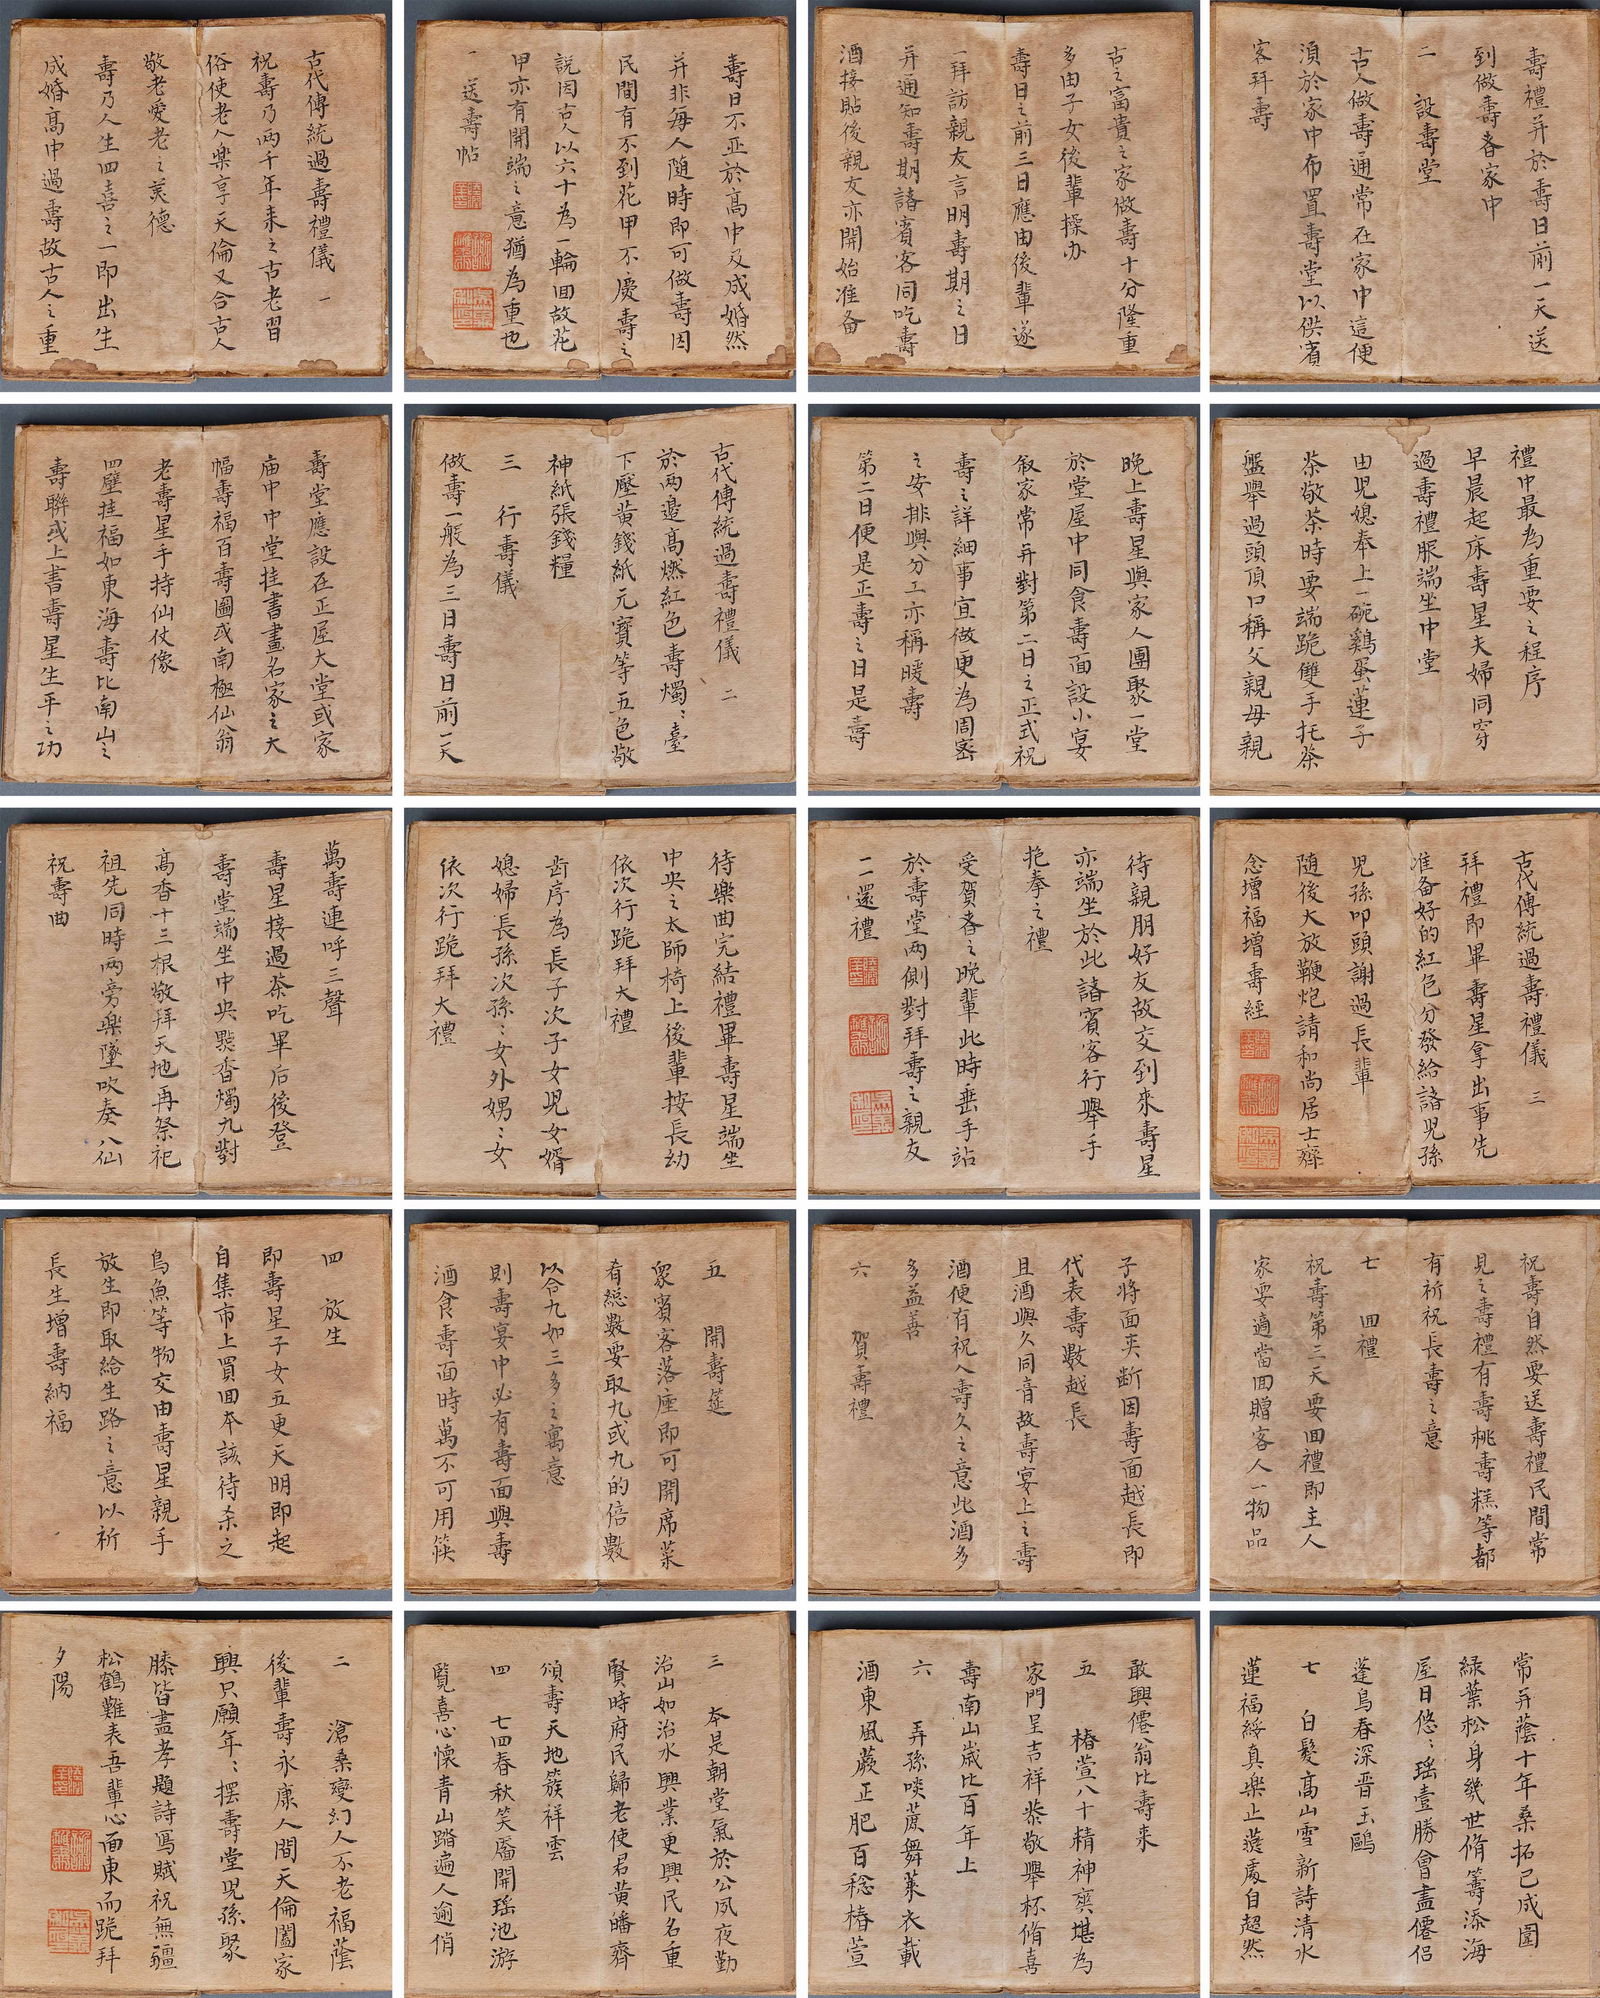 古代傳統過壽禮儀 一
祝壽乃兩千年来之古老習
俗使老人樂享天倫又合古人
敬老愛老之美德
壽乃人生四喜之一即出生
成婚高中過壽故古人之重
壽日不亚於高中及成婚然
并非每人随時即可做壽因
民間有不到花甲不慶壽之
説因古人以六十為一輪回故花
甲亦有開端之意猶為重也
一 送壽帖
古之富貴之家做壽十分隆重
多由子女後輩操办
壽日之前三日應由後輩逐
一拜訪親友言明壽期之日
并通知壽期諸賓客同吃壽
酒接貼後親友亦開始准备
壽禮并於壽日前一天送
到做壽者家中
二 設壽堂
古人做壽通常在家中這便
須於家中布置壽堂以供賓
客拜壽
壽堂應設在正屋大堂或家
庙中中堂挂書畫名家之大
幅壽福百壽圖或南極仙翁
老壽星手持仙仗像
四壁挂福如東海壽比南山之
壽聯或上書壽星生平之功
古代傳統過壽禮儀 二
於两邉高燃紅色壽燭:臺
下壓黄錢紙元寳等五色敬
神紙張錢糧
三 行壽儀
做壽一般為三日壽日前一天
晚上壽星與家人團聚一堂
於堂屋中同食壽面設小宴
叙家常并對第二日之正式祝
壽之詳細事宜做更為周密
之安排與分工亦稱暖壽
第二日便是正壽之日是壽
禮中最為重要之程序
早晨起床壽星夫婦同穿
過壽禮服端坐中堂
由児媳奉上一碗鷄蛋蓮子
茶敬茶時要端跪雙手托茶
盤舉過頭頂口稱父親母親
萬壽連呼三聲
壽星接過茶吃畢后後登
壽堂端坐中央點香燭九對
高香十三根敬拜天地再祭祀
祖先同時两旁樂墜吹奏八仙
祝壽曲
待樂曲完結禮畢壽星端坐
中央之太師椅上後輩按長幼
依次行跪拜大禮
齿序為長子次子女児女婿
媳婦長孫次孫:女外甥:女
依次行跪拜大禮
待親朋好友故交到來壽星
亦端坐於此諸賓客行舉手
抱拳之禮
受賀者之晚輩此時垂手站
於壽堂两側對拜壽之親友
一一還禮
古代傳統過壽禮儀 三
拜禮即畢壽星拿出事先
准备好的紅包分發給諸児孫
児孫叩頭謝過長輩
随後大放鞭炮請和尚居士齊
念增福增壽經
四 放生
即壽星子女五更天明即起
自集市上買回本該待杀之
鳥魚等物交由壽星親手
放生即取給生路之意以祈
長生增壽納福
五 開壽筵
衆賓客落座即可開席菜
肴總数要取九或九的倍數
以合九如三多之寓意
則壽宴中必有壽面與壽
酒食壽面時萬不可用筷
子將面夹断因壽面越長即
代表壽數越長
且酒與久同音故壽宴上之壽
酒便有祝人壽久之意此酒多
多益善
六 賀壽禮
祝壽自然要送壽禮民間常
見之壽禮有壽桃壽糕等都
有祈祝長壽之意
七 回禮
祝壽第三天要回禮即主人
家要適當回贈客人一物品
二 滄桑變幻人不老福蔭
後輩壽永康人間天倫闔家
興只願年:擺壽堂児孫聚
膝皆盡孝題詩寫賦祝無疆
松鶴難表吾輩心面東而跪拜
夕陽
三 本是朝堂氣於公夙夜勤
治山如治水興業更興民名重
賢時府民歸老使君黄皤齊
頌壽天地簇祥雲
四 七四春秋笑靨開瑶池游
覧喜心懷青山踏遍人逾俏
敢興僊翁比壽来
五 椿萱八十精神爽堪為
家門呈吉祥恭敬舉杯脩喜
壽南山歲比百年上
六 弄孫啖蔗舞莱衣載
酒東風蕨正肥百稔椿萱
常并蔭十年桑拓已成圍
緑葉松身幾世脩籌添海
屋日悠:瑶臺勝會盡僊侣
蓬島春深晋玉鷗
七 白髮高山雪新詩清水
蓮福綏真樂止蕓處自超然